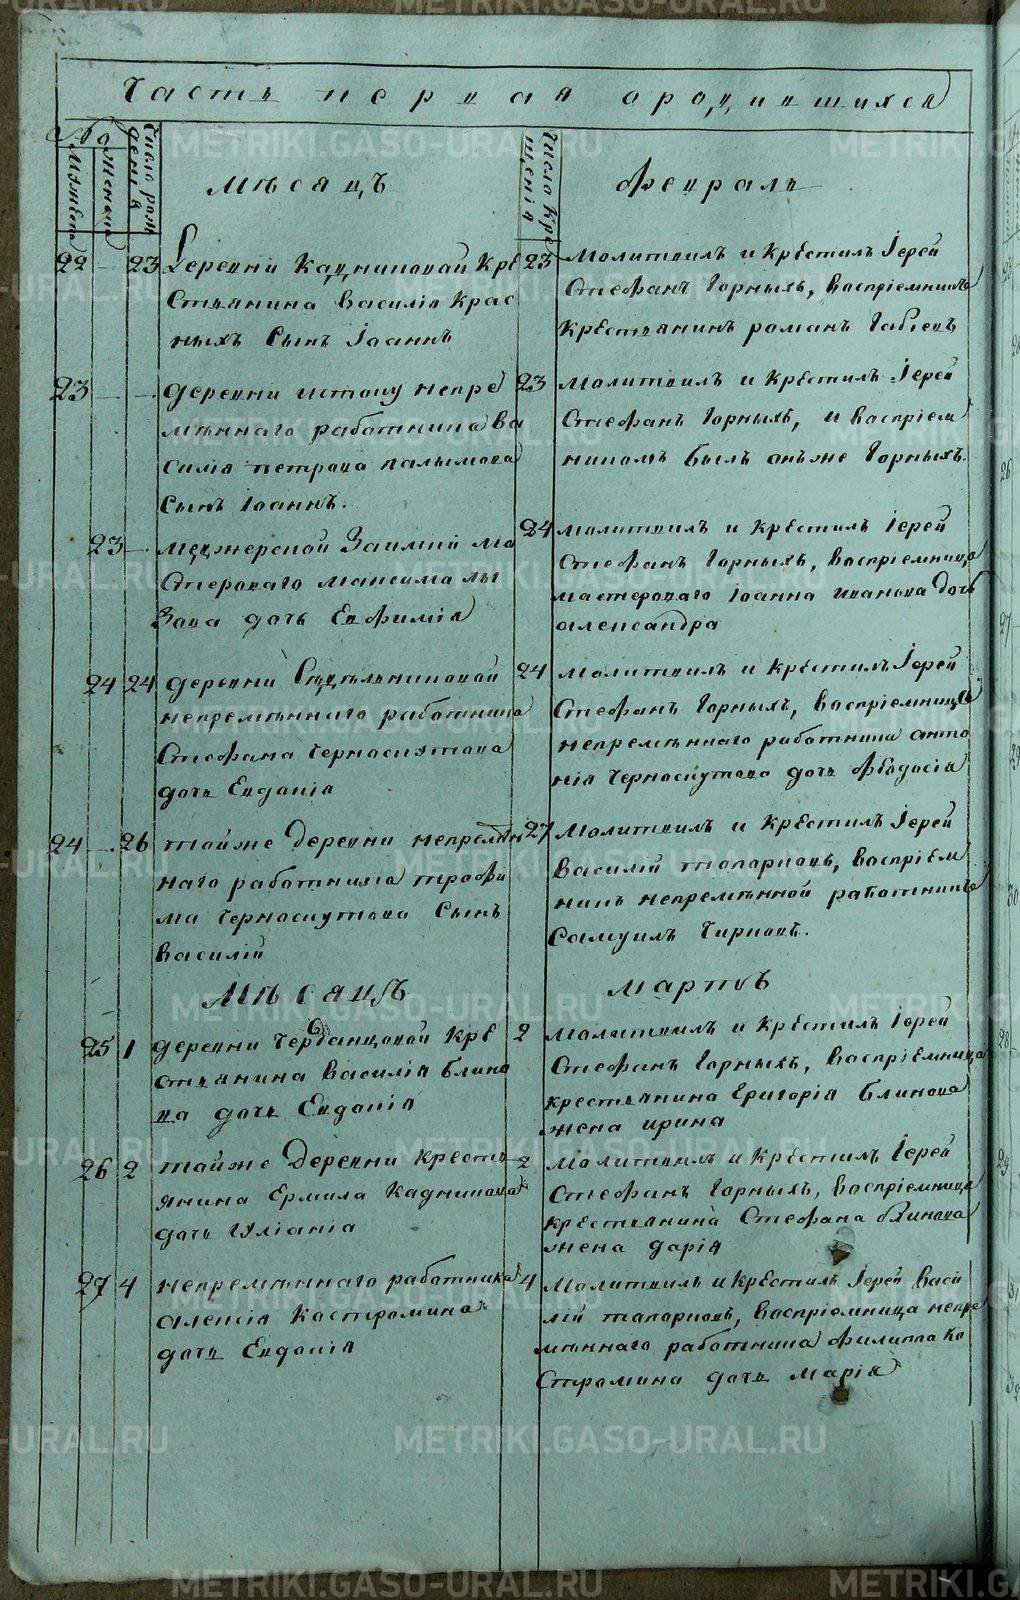 Часть первая ородившихся
№
Мужеска
Женска
Число рож
денія
Мѣсяцъ
Число Кре
щенія
Февраль
22 — 23 Деревни Кадниковой Кре
стьянина Василія Крас
ныхъ Сынъ Іоаннъ
23 Молитвилъ и Крѣстилъ Іерей
Стефанъ Горныхъ, Воспріемникъ
Крѣстьянинъ романъ
23 — — деревни истоку непре
мѣннаго работника Ва
силія петрова палымова
Сынъ Іоаннъ.
23 Молитвилъ и Крѣстилъ Іерей
Стефанъ Горныхъ, и Воспріем
никомъ былъ онъже Горныхъ.
23 — Заимки ма
стероваго максима лы
зова дочь Евфимія
24 Молитвилъ и Крѣстилъ Іерей
Стефанъ Горныхъ, Воспріемница
мастероваго Іоанна иванова дочь
александра
24 24 деревни
непремѣннаго работника
Стефана Черноскутова
дочь Евдокія
24 Молитвилъ и Крѣстилъ Іерей
Стефанъ Горныхъ, Воспріемница
непремѣннаго работника анто
нія Черноскутова дочь Феодосія
24 — 26 тойже Деревни непремѣн
наго работника трофи
ма Черноскутова Сынъ
Василій
27 Молитвилъ и Крѣстилъ Іерей
Василій топорковъ, Воспріем
никъ непремѣнной работникъ
Самуилъ Чирковъ.
Мѣсяцъ
Мартъ
25 1 деревни Крѣ
стьянина Василія блино
ва дочь Евдокія
2 Молитвилъ и Крѣстилъ Іерей
Стефанъ Горныхъ, Воспріемница
крестьянина Григорія блинова
жена ирина
26 2 тойже Деревни Кресть
янина Ермила Кадникова
дочь Іуліанія
2 Молитвилъ и Крѣстилъ Іерей
Стефанъ Горныхъ, Воспріемница
крѣстьянина Стефана блинова
жена дарія
27 4 непремѣннаго работника
алексія Костромина
дочь Евдокія
4 Молитвилъ и Крѣстилъ Іерей Васи
лій топорковъ, Воспріемница непре
мѣннаго работника филиппа Ко
стромина дочь марія
METRIKI.GASO-URAL.RU